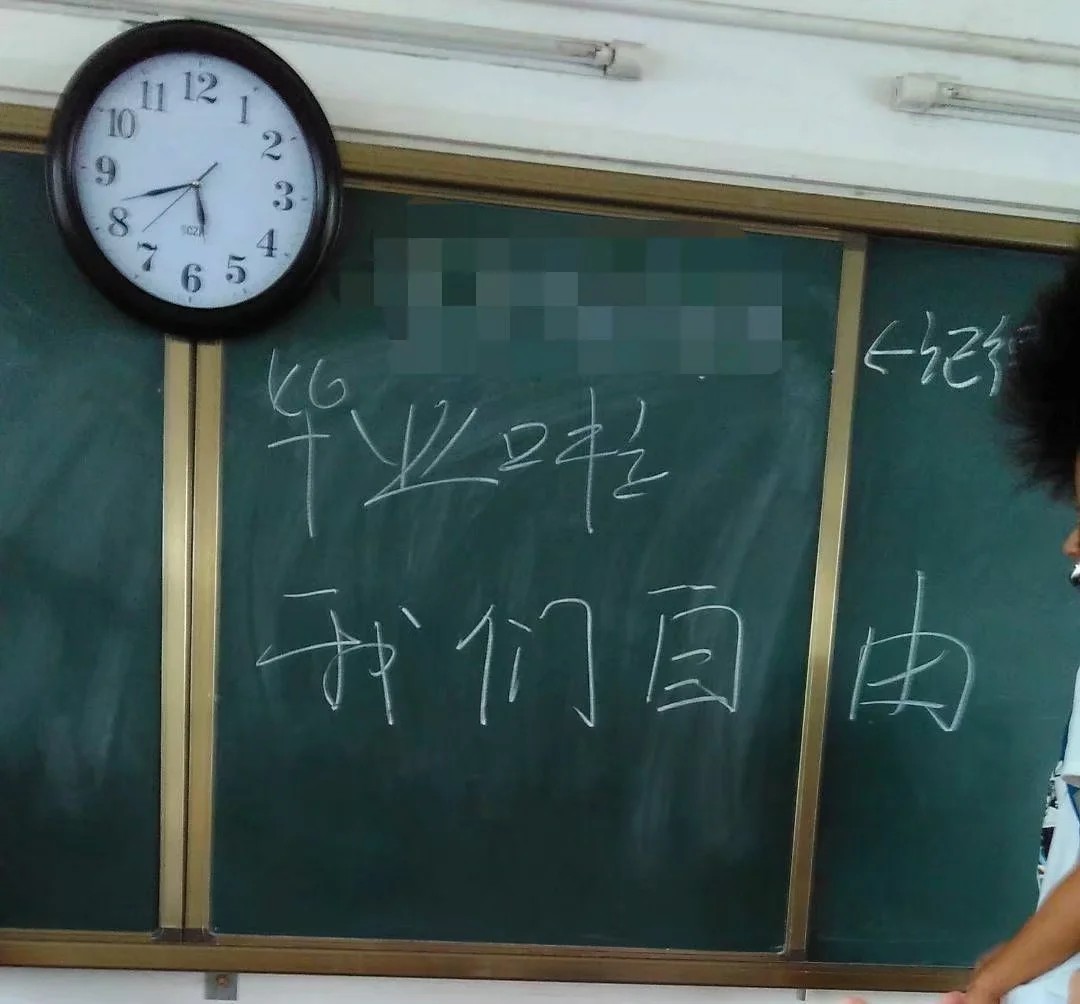 12 1 2 3 4 5 6 7 8 9 10 11
←记
毕业啦
我们自由